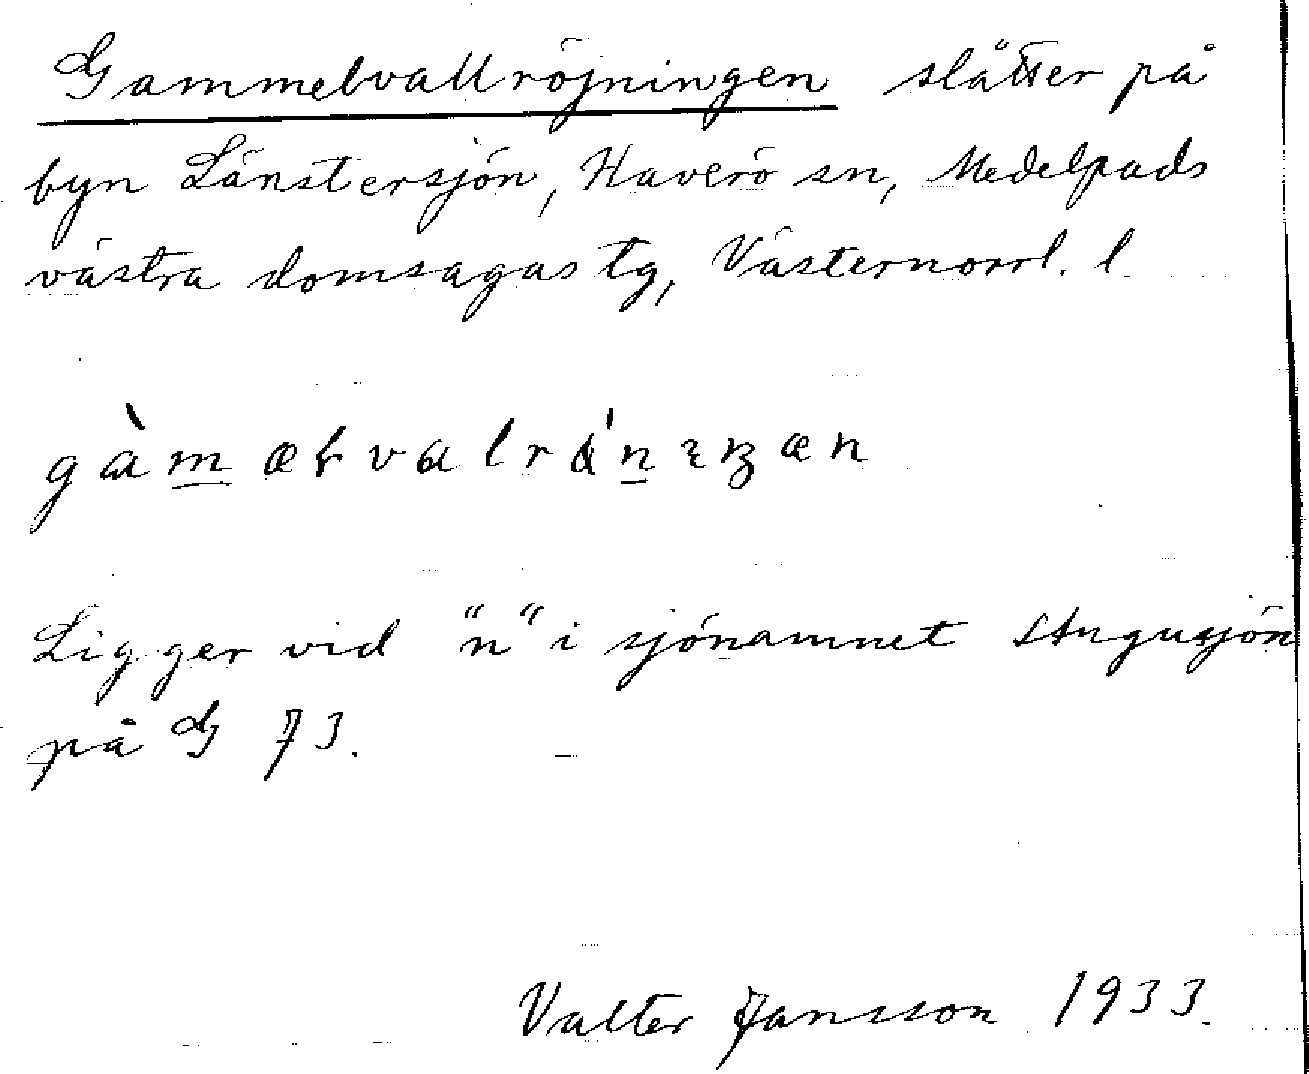 Gammelvallröjningen slåtter på
byn Länstersjön, Haverö sn, Medelpads
västra domsagas tg, Västernorrl. l.
Ligger vid "n" i sjönamnet Ängusjön
på G 73.
Valter Jansson 1933.